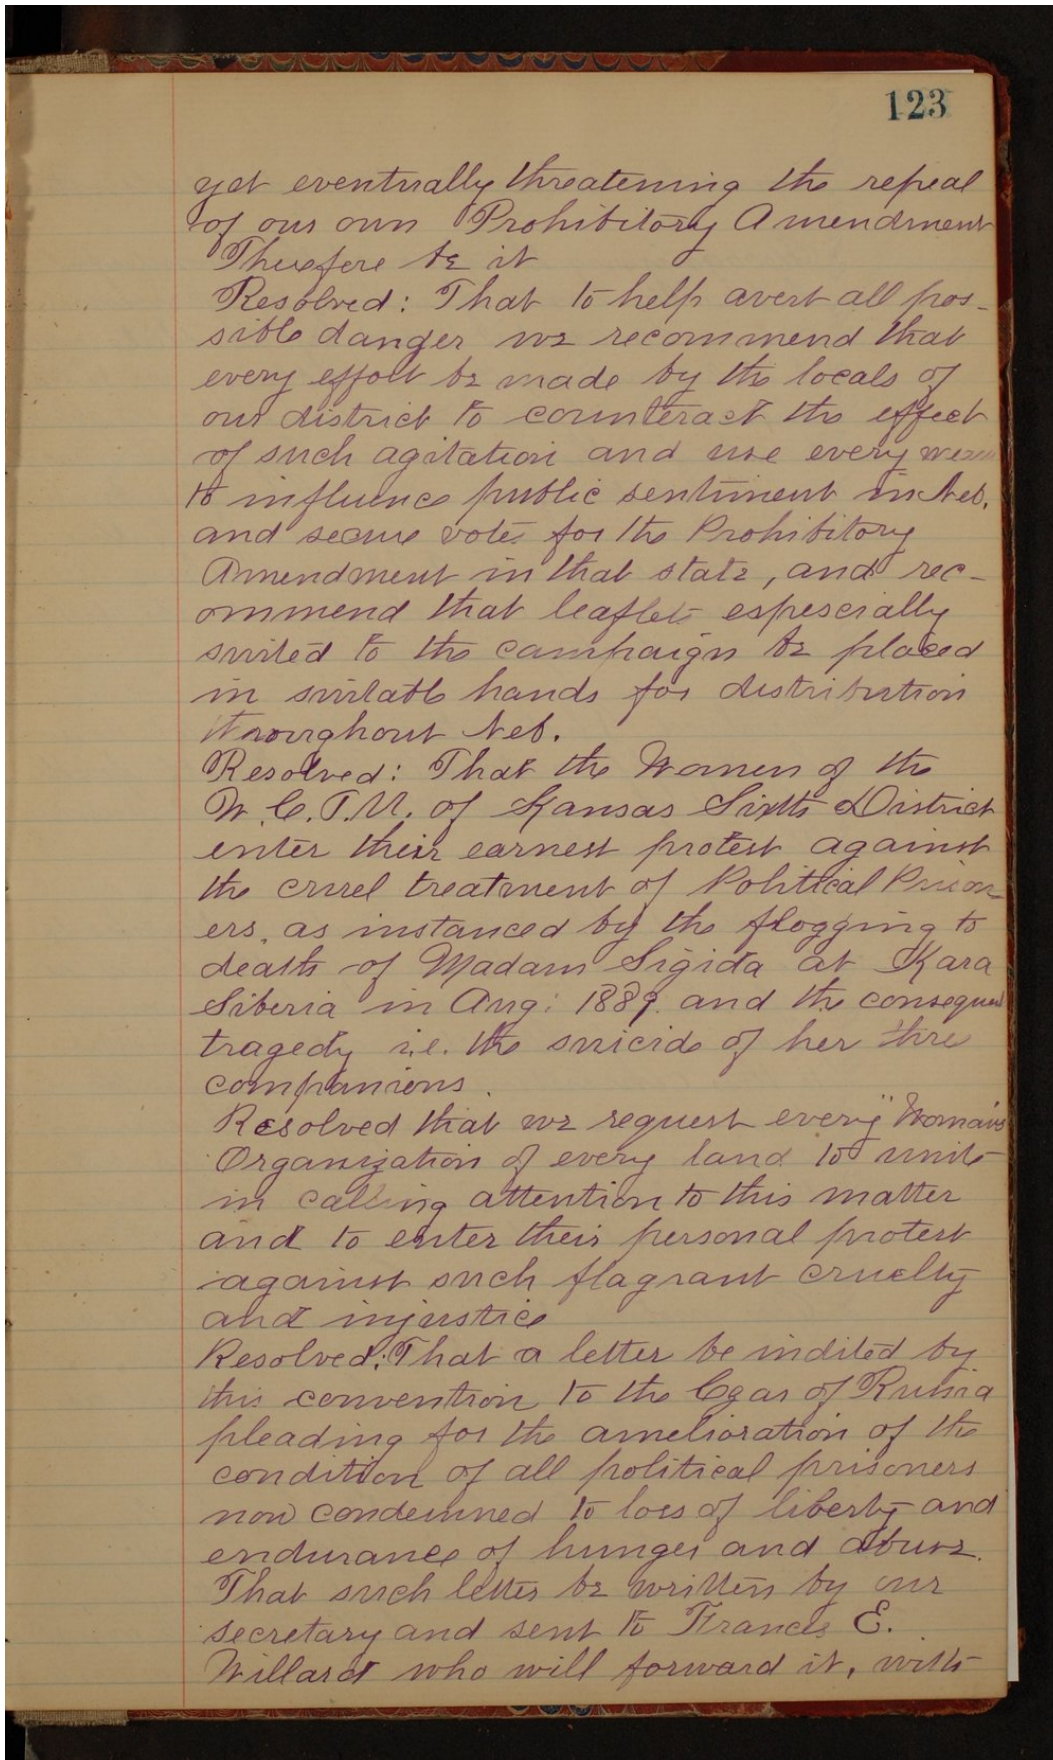 123
yet eventually threatening the repeal
of our own Prohibitory Amendment
Therefore be it
Resolved: That to help avert all pos-
sible danger we recommend that
every effort be made by the locals of
our district to counteract the effect
of such agitation and use every means
to influence public sentiment in Neb.
and secure votes for the Prohibitory
Amendment in that state, and rec-
ommend that leaflets espescially
suited to the campaign be placed
in suitable hands for distribution
throughout Neb.
Resolved: That the Women of the
W.C.T.U. of Kansas Sixth District
enter their earnest protest against
the cruel treatment of Political Prison-
ers, as instanced by the flogging to
death of Madam Sigida at Kara
Siberia in Aug: 1889. and the consequent
tragedy i.e. the suicide of her three
companions.
Resolved that we request every "Woman's
Organization of every land to unite
in calling attention to this matter
and to enter their personal protest
against such flagrant cruelty
and injustice
Resolved: That a letter be indited by
this convention to the Czar of Russia
pleading for the amelioration of the
condition of all political prisoners
now condemned to loss of liberty and
endurance of hunger and abuse.
That such letter be written by our
secretary and sent to Francis E.
Willard who will forward it, with